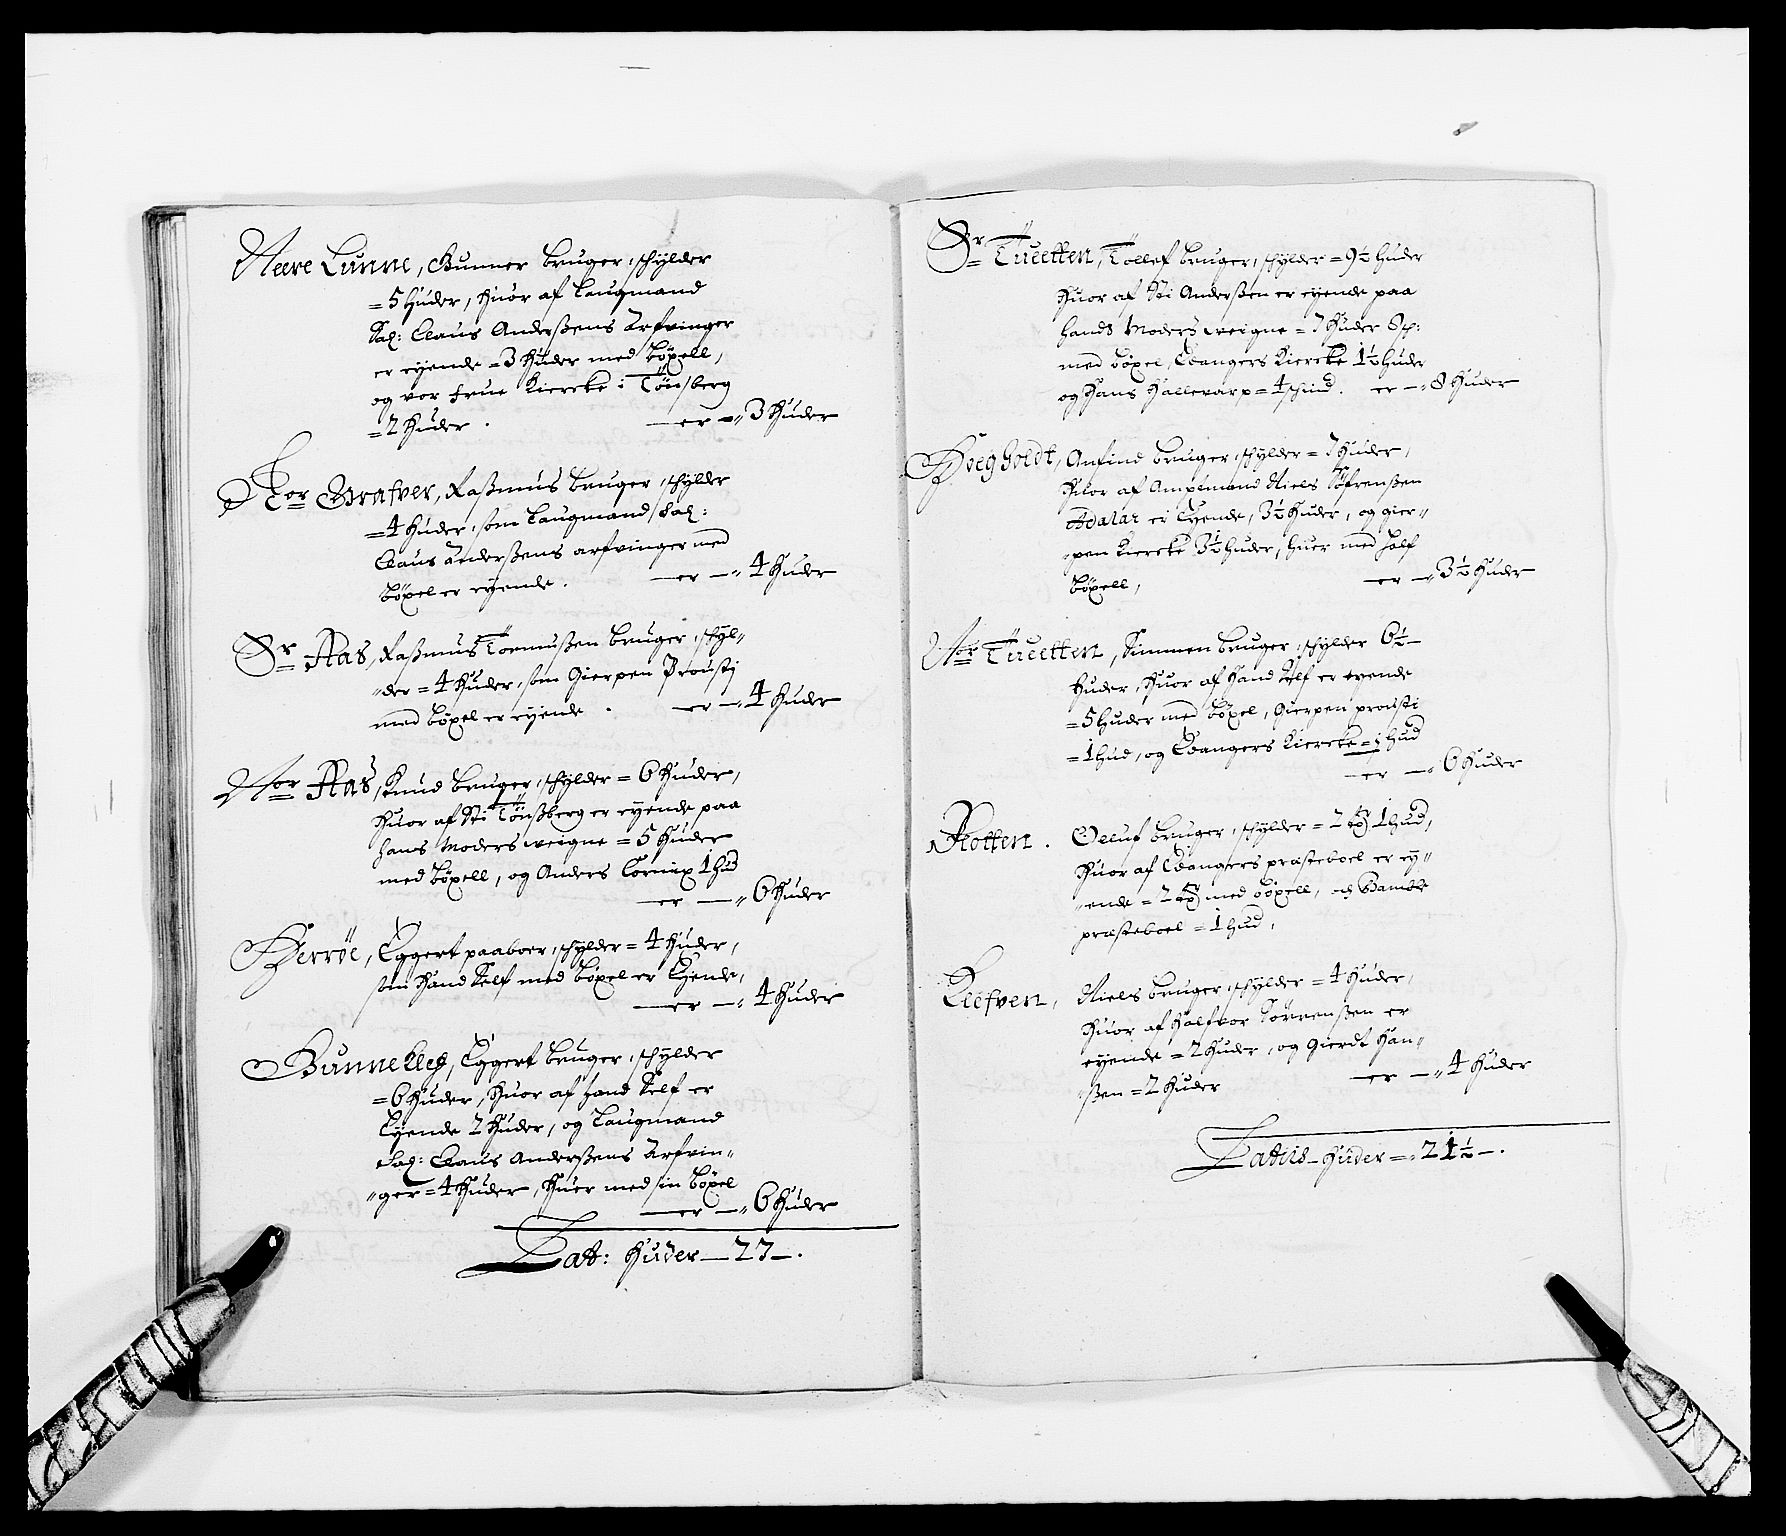 Neere Lunne, Gunner bruger, schylder
= 5 huder, huor af Laugmand
Sal: Claus Anderßens Arfvinger
er eyende = 3 Huder med böxell,
og vor frue Kiercke i Tönsberg
= 2 huder . — er —„ 3 Huder
Tor Grafver, Raßmus bruger, schylder
= 4 huder, som Laugmand Sal:
Claus Anderßens arfvinger med
böxel er eyende . — er —„ 4 Huder
Sr Aas, Raßmus Tormußen bruger, schyl„
„der = 4 Huder, som Gierpen Proustj
med böxel er eyende . — er —„ 4 Huder
Nor Aas, Knud bruger, schylder = 6 Huder,
huor af Sti Tönßberg er eyende paa
hans Moders weigne = 5 Huder
med böxell, og Anders 1 hud
— er —„ 6 Huder
Herröe, Eggert paaboer, schylder = 4 Huder,
som Hand Self med böxel er Eyende,
— er —„ 4 Huder
Gunneklef, Eggert bruger, schylder
= 6 Huder, huor af hand Self er
Eyende 2 Huder, og Laugmand
Sal: Claus Anderßens Arfvin„
„ger = 4 Huder, huer med sin böxel
— er —„ 6 Huder
Lat: Huder — 27 —.
Sr Tueetten, Tollef bruger, schylder = 9½ huder
huor af Sti Anderßen er eyende paa
hands Moders weigne = 7 Huder
med böxel, Eidangers Kiercke 1½ huder
og Hans Hallevarp = 4 schind. er —„ 8 Huder
Anfind bruger, schylder = 7 Huder,
huor af Amptmand Niels Söfrenßen
Adalar er Eyende, 3½ huder, og gier„
„pen kiercke 3½ huder, huer med half
böxell, — er —„ 3½ Huder
Nor Tueetten, Simmen bruger, schylder 6½ —
huder, huor af Hand Self er eyende
= 5 huder med böxel, Gierpen prousti
= 1 hud, og Eidangers Kiercke = ½ hud
— er —„ 6 Huder
Flotten . Oelluf bruger, schylder = 2 1 hud,
huor af Eidangers præsteboel er ey„
„ende = 2 med böxell, och Bamble
præsteboel = 1 hud,
Klefven, Niels bruger, schylder = 4 huder,
huor af Halfvor Sörrenßen er
eyende = 2 huder, og Gierdt Han„
„ßen = 2 Huder — er —„ 4 Huder
Latus — Huder =„ 21½ —.